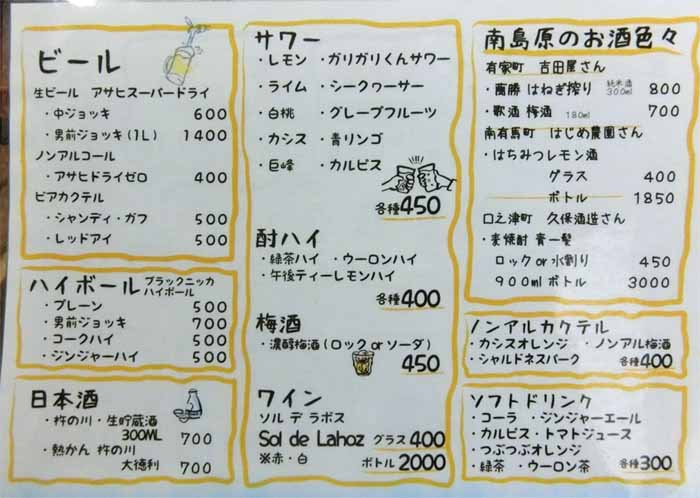 ビール
生ビール アサヒスーパードライ
・中ジョッキ 600
・男前ジョッキ(1L) 1400
ノンアルコール
・アサヒドライゼロ 400
ビアカクテル
・シャンディ・ガフ 500
・レッドアイ 500
ハイボール ブラックニッカ
ハイボール
・プレーン 500
・男前ジョッキ 700
・コークハイ 500
・ジンジャーハイ 500
日本酒
・杵の川・生貯蔵酒
300ML 700
・熱かん 杵の川
大徳利 700
サワー
・レモン ・ガリガリくんサワー
・ライム ・シークヮーサー
・白桃 ・グレープフルーツ
・カシス ・青リンゴ
・巨峰 ・カルピス
各種450
酎ハイ
・緑茶ハイ ・ウーロンハイ
・午後ティーレモンハイ
各種400
梅酒
・濃醇梅酒(ロック or ソーダ)
450
ワイン
ソル デ ラボス
Sol de Lahoz グラス 400
※赤・白 ボトル 2000
南島原のお酒色々
有家町 吉田屋さん
・萬勝 はねぎ搾り 純米酒 300ml 800
・歌酒 梅酒 180ml 700
南有馬町 はじめ農園さん
・はちみつレモン酒
グラス 400
ボトル 1850
口之津町 久保酒造さん
・麦焼酎 青一髪
ロック or 水割り 450
900ml ボトル 3000
ノンアルカクテル
・カシスオレンジ ・ノンアル梅酒
・シャルドネスパーク 各種400
ソフトドリンク
・コーラ ・ジンジャーエール
・カルピス・トマトジュース
・つぶつぶオレンジ
・緑茶 ・ウーロン茶 各種300